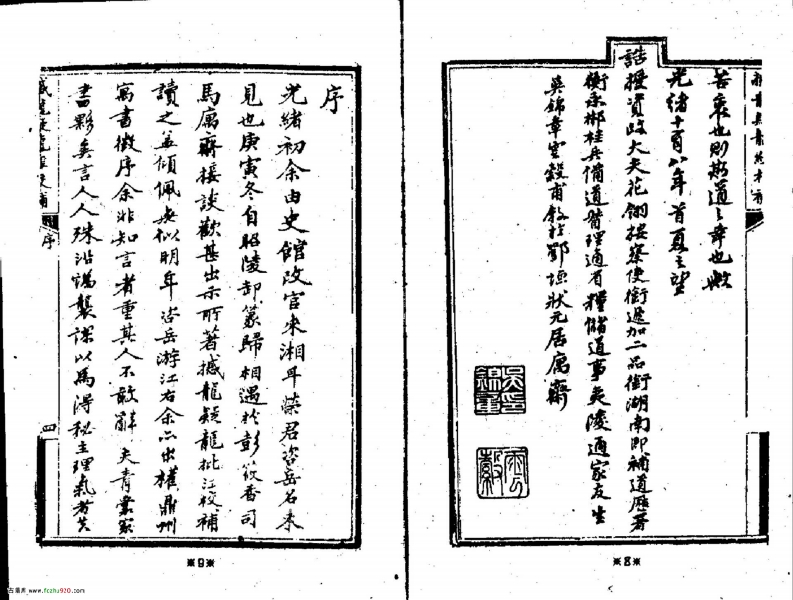 苦衷也則斯道之幸也歟
光緒十有八年首夏之望
誥授資政大夫花翎按察使銜遞加二品銜湖南即補道歷署
衡永郴桂兵備道督理通省糧儲道事夷陵通家友生
吳錦章雲穀甫敘於鄂垣狀元居寓齋
序
光緒初余由史館改官來湘耳榮君咨岳名未
見也庚寅冬自昭陵卸篆歸相遇於彭筱香司
馬寓齋接談歡甚出示所著撼龍疑龍批注校補
讀之益傾佩無似明年咨岳游江右余亦出權鼎州
寓書徵序余非知言者重其人不敢辭夫青囊家
書夥矣言人人殊沿譌襲謬以為得秘主理氣者失
序
四
※8※
※9※
www.fczhu920.com